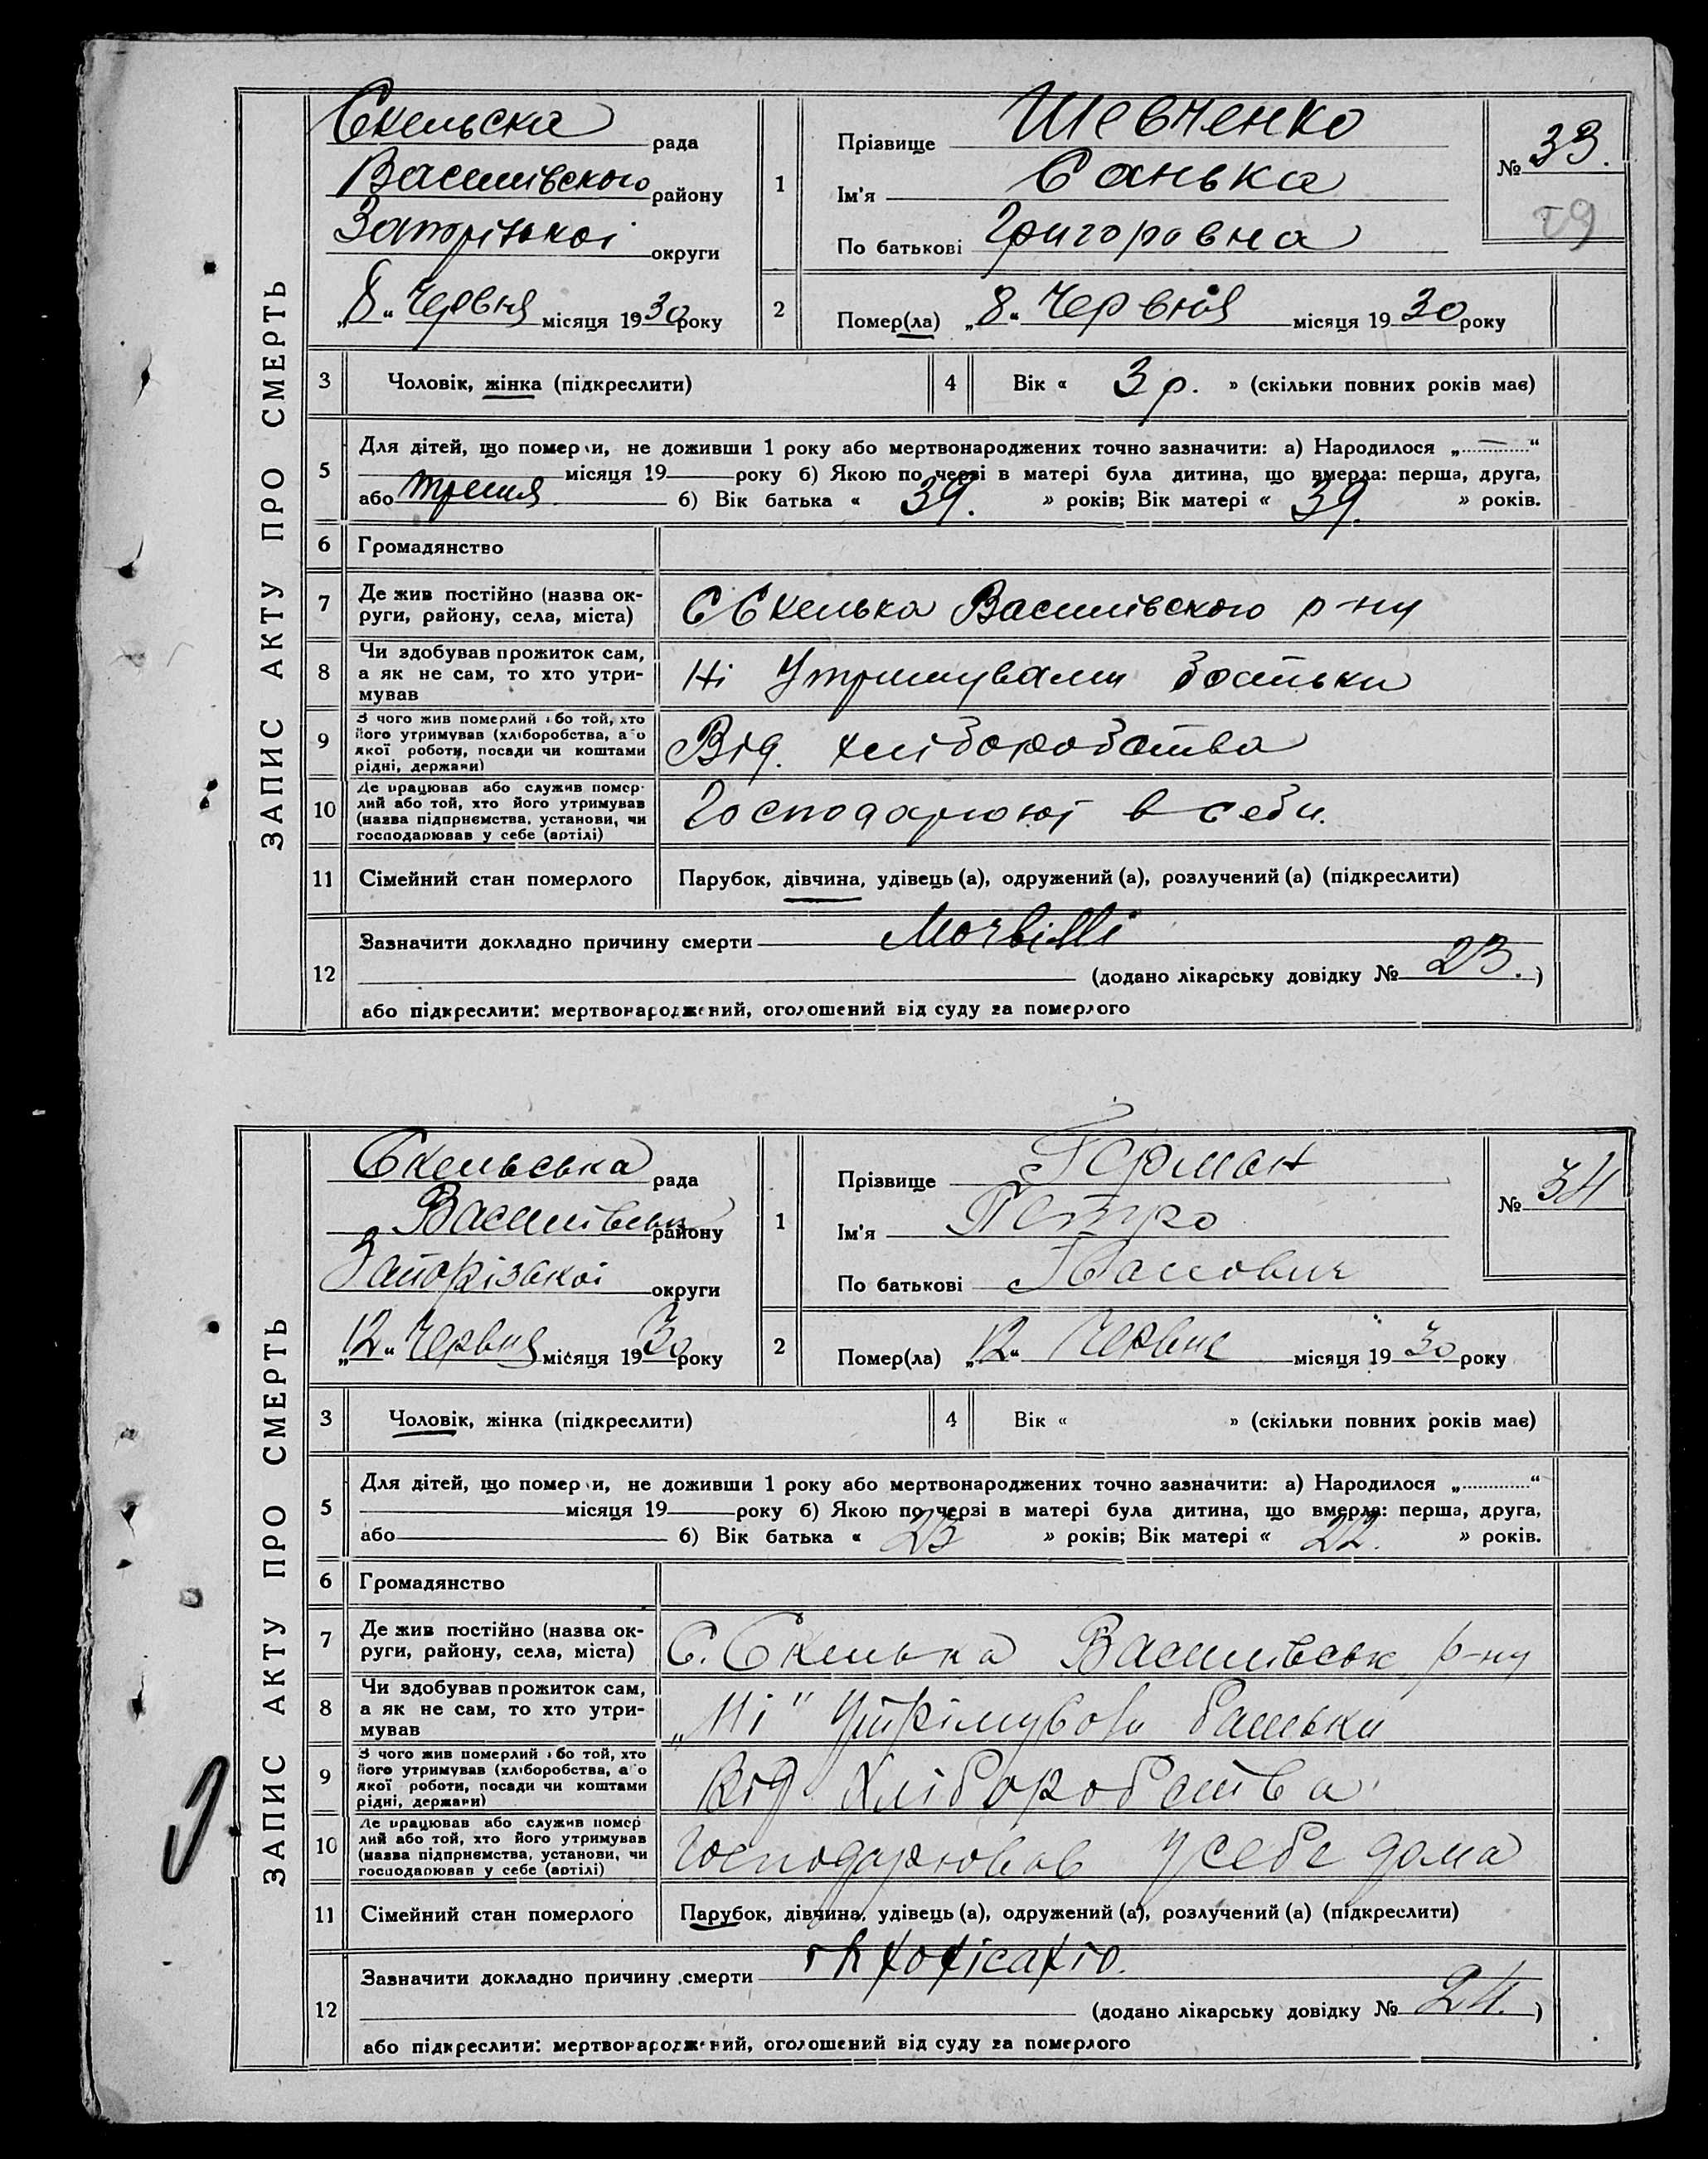 ЗАПИС АКТУ ПРО СМЕРТЬ
Скельска рада
Василівского району
Запорізької округи
„8“ Червня місяця 1930 року
1
Прізвище Шевченко
Ім'я Санька
По батькові Григоровна
№ 33.
29
2
Помер(ла) „8“ Червня місяця 1930 року
3 Чоловік, жінка (підкреслити)
4 Вік « 3 р. » (скільки повних років має)
5 Для дітей, що померли, не доживши 1 року або мертвонароджених точно зазначити: а) Народилося „—“
місяця 19 року б) Якою по черзі в матері була дитина, що вмерла: перша, друга,
або третя б) Вік батька « 39. » років; Вік матері « 39. » років.
6 Громадянство
7 Де жив постійно (назва округи, району, села, міста) С Скелька Василівского р-ну
8 Чи здобував прожиток сам, а як не сам, то хто утримував Ні Утримували батьки
9 З чого жив померлий або той, хто його утримував (хліборобства, або якої роботи, посади чи коштами рідні, держави) Від. хліборобства
10 Де працював або служив померлий або той, хто його утримував (назва підприємства, установи, чи господарював у себе (артілі) Господарюют в себи.
11 Сімейний стан померлого Парубок, дівчина, удівець (а), одружений (а), розлучений (а) (підкреслити)
12 Зазначити докладно причину смерти Morbilli
(додано лікарську довідку № 23.)
або підкреслити: мертвонароджений, оголошений від суду за померлого
ЗАПИС АКТУ ПРО СМЕРТЬ
Скельська рада
Василівськ району
Запорізькоі округи
„12“ Червня місяця 1930 року
1
Прізвище Герман
Ім'я Петро
По батькові Іванович
№ 34
2
Помер(ла) „12“ Червне місяця 1930 року
3 Чоловік, жінка (підкреслити)
4 Вік « » (скільки повних років має)
5 Для дітей, що померли, не доживши 1 року або мертвонароджених точно зазначити: а) Народилося „“
місяця 19 року б) Якою по черзі в матері була дитина, що вмерла: перша, друга,
або б) Вік батька « 23 » років; Вік матері « 22. » років.
6 Громадянство
7 Де жив постійно (назва округи, району, села, міста) С. Скелька Василівськ р-ну
8 Чи здобував прожиток сам, а як не сам, то хто утримував „Ні“ Утрімували батьки
9 З чого жив померлий або той, хто його утримував (хліборобства, або якої роботи, посади чи коштами рідні, держави) Від Хліборобства
10 Де працював або служив померлий або той, хто його утримував (назва підприємства, установи, чи господарював у себе (артілі) Господарював у себе дома
11 Сімейний стан померлого Парубок, дівчина, удівець (а), одружений (а), розлучений (а) (підкреслити)
12 Зазначити докладно причину смерти
(додано лікарську довідку № 24.)
або підкреслити: мертвонароджений, оголошений від суду за померлого